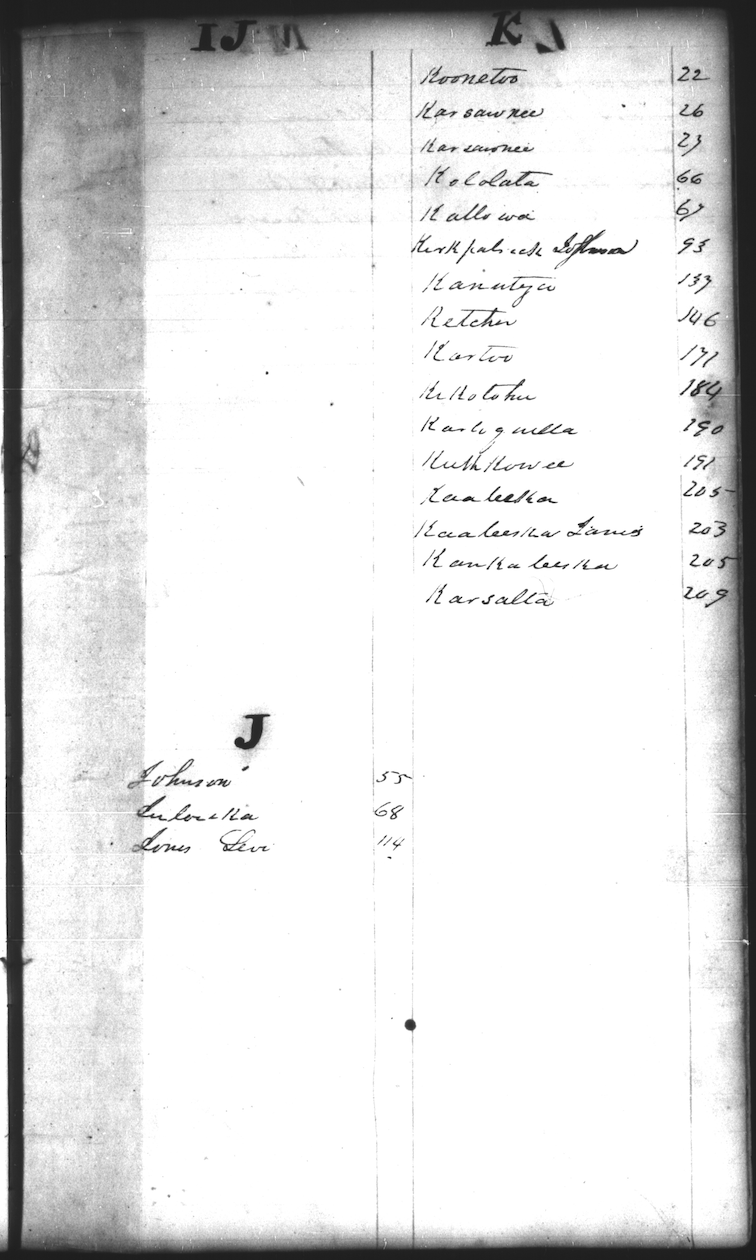 IJ
J
Johnson 55
68
Jones Levi 114
K
Koonetoo 22
Karsawnee 26
Karsawnee 27
Kololata 66
Kallowa 67
Kirkpatrick 93
Kanuteya 137
Ketcher 146
Kartoo 171
Kekotohee 184
190
Kuthkowee 191
Kaaleeska 205
Kaaleeska James 203
Kankaleeska 205
Karsalta 209